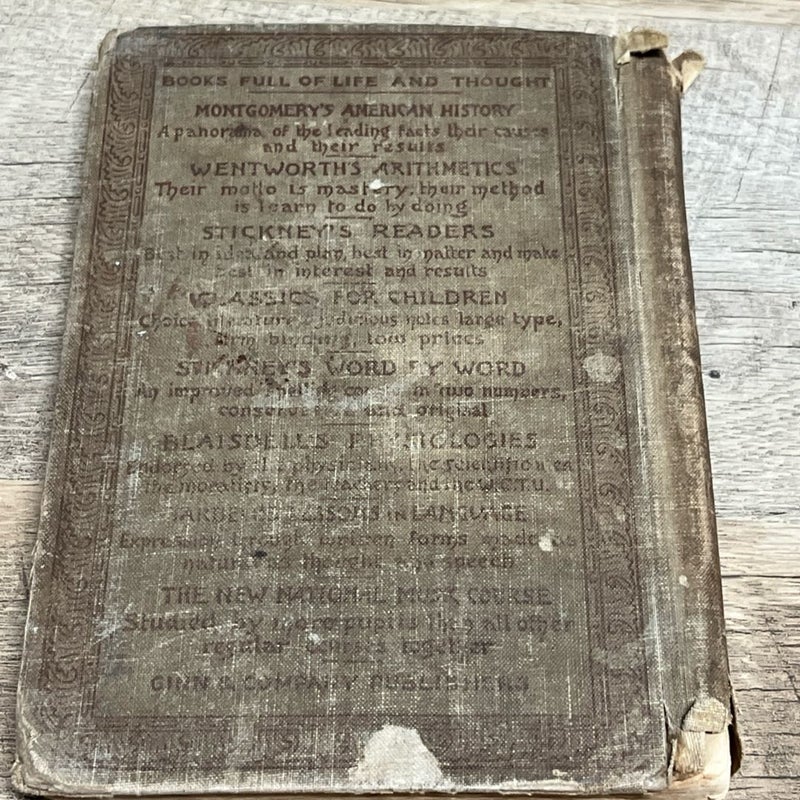 BOOKS FULL OF LIFE AND THOUGHT
MONTGOMERY'S AMERICAN HISTORY
A panorama of the leading facts their causes
and their results
WENTWORTH'S ARITHMETICS
Their motto is mastery, their method
is learn to do by doing
STICKNEY'S READERS
Best in idea and plan, best in matter and make
best in interest and results
CLASSICS FOR CHILDREN
Choice literature, judicious notes large type,
firm binding, low prices
STICKNEY'S WORD BY WORD
An improved spelling course in two numbers,
conservative and original
BLAISDELL'S PHYSIOLOGIES
Endorsed by the physicians, the scientific
the moralists, the teachers and the W.C.T.U.
LESSONS IN LANGUAGE
Expression through written forms made as
natural as thought and speech
THE NEW NATIONAL MUSIC COURSE
Studied by more pupils than all other
regular courses together
GINN & COMPANY PUBLISHERS